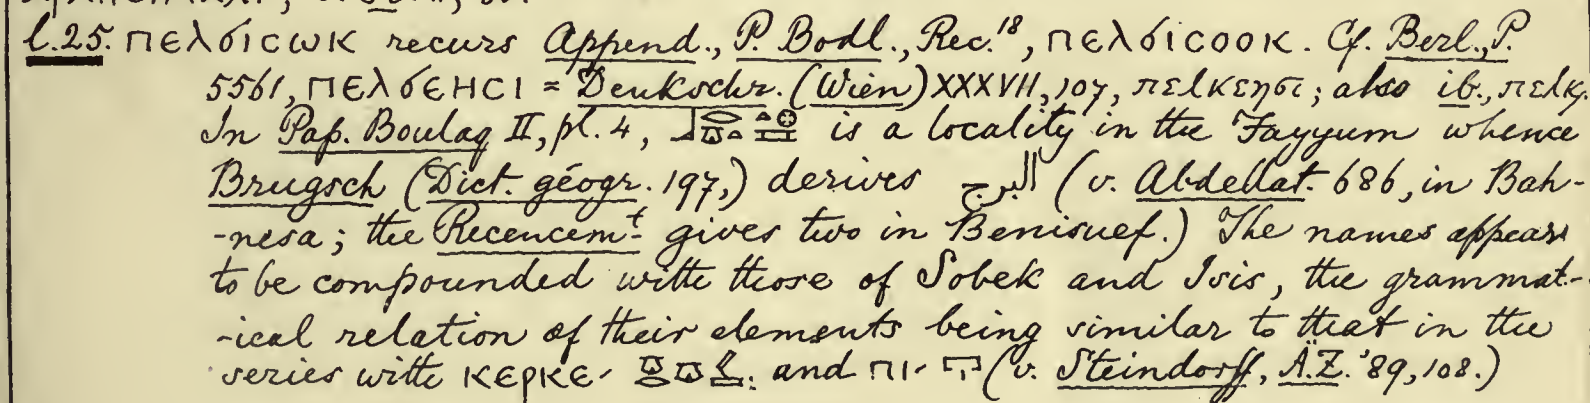 l.25. ⲡⲉⲗϭⲓⲥⲱⲕ recurs Append., P. Bodl., Rec.¹⁸, ⲡⲉⲗϭⲓⲥⲟⲟⲕ. Cf. Berl., P.
5561, ⲡⲉⲗϭⲉⲏⲥⲓ = Denkschr. (Wien) XXXVII, 107, πελκεησι; also ib., πελκ
In Pap. Boulaq II, pl. 4, is a locality in the Fayyum whence
Brugsch (Dict. géogr. 197,) derives البرج (v. Abdellat. 686, in Bah-
-nesa; the Recencemt. gives two in Benisuef.) The names appear
to be compounded with those of Sobek and Isis, the grammat-
-ical relation of their elements being similar to that in the
series with ⲕⲉⲣⲕⲉ- and ⲡⲓ- (v. Steindorff, Ä.Z. '89, 108.)